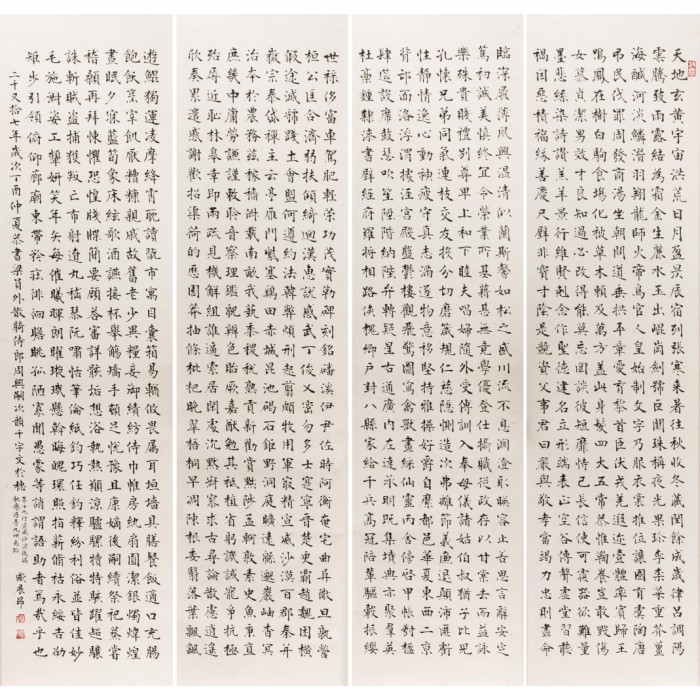 天地玄黃宇宙洪荒日月盈昃辰宿列張寒来暑往秋收冬藏閏餘成歲律呂調陽
雲騰致雨露結為霜金生麗水玉出崐岡劍號巨闕珠稱夜光果珍李柰菜重芥薑
海鹹河淡鱗潛羽翔龍師火帝鳥官人皇始制文字乃服衣裳推位讓國有虞陶唐
弔民伐罪周發商湯坐朝問道垂拱平章愛育黎首臣伏戎羌遐邇壹體率賓歸王
鳴鳳在樹白駒食場化被草木賴及萬方蓋此身髮四大五常恭惟鞠養豈敢毀傷
女慕貞潔男效才良知過必改得能莫忘罔談彼短靡恃己長信使可覆器欲難量
墨悲絲染詩讚羔羊景行維賢剋念作聖德建名立形端表正空谷傳聲虛堂習聽
禍因惡積福緣善慶尺璧非寶寸陰是競資父事君曰嚴與敬孝當竭力忠則盡命
臨深履薄夙興溫凊似蘭斯馨如松之盛川流不息淵澄取映容止若思言辭安定
篤初誠美慎終宜令榮業所基籍甚無竟學優登仕攝職從政存以甘棠去而益詠
樂殊貴賤禮別尊卑上和下睦夫唱婦隨外受傅訓入奉母儀諸姑伯叔猶子比兒
孔懷兄弟同氣連枝交友投分切磨箴規仁慈隱惻造次弗離節義廉退顛沛匪虧
性靜情逸心動神疲守真志滿逐物意移堅持雅操好爵自縻都邑華夏東西二京
背邙面洛浮渭據涇宮殿盤鬱樓觀飛驚圖寫禽獸畫綵仙靈丙舍傍啓甲帳對楹
肆筵設席鼓瑟吹笙升階納陛弁轉疑星右通廣內左達承明既集墳典亦聚群英
杜稾鍾隸漆書壁經府羅將相路俠槐卿戶封八縣家給千兵高冠陪輦驅轂振纓
世祿侈富車駕肥輕策功茂實勒碑刻銘磻溪伊尹佐時阿衡奄宅曲阜微旦孰營
桓公匡合濟弱扶傾綺迴漢惠說感武丁俊乂密勿多士寔寧晉楚更霸趙魏困橫
假途滅虢踐土會盟何遵約法韓弊煩刑起翦頗牧用軍最精宣威沙漠百郡秦并
嶽宗泰岱禪主云亭雁門紫塞鷄田赤城昆池碣石鉅野洞庭曠遠緜邈巖岫杳冥
治本於農務茲稼穡俶載南畝我藝黍稷稅熟貢新勸賞黜陟孟軻敦素史魚秉直
庶幾中庸勞謙謹敕聆音察理鑑貌辨色貽厥嘉猷勉其祗植省躬譏誡寵增抗極
殆辱近恥林皋幸即兩疏見機解組誰逼索居閑處沉默寂寥求古尋論散慮逍遙
欣奏累遣慼謝歡招渠荷的歷園莽抽條枇杷晚翠梧桐早凋陳根委翳落葉飄颻
遊鯤獨運凌摩絳霄耽讀翫市寓目囊箱易輶攸畏屬耳垣墻具膳餐飯適口充腸
飽飫烹宰飢厭糟糠親戚故舊老少異糧妾御績紡侍巾帷房紈扇圓潔銀燭煒煌
晝眠夕寐藍筍象床絃歌酒讌接杯舉觴矯手頓足悅豫且康嫡後嗣續祭祀蒸嘗
稽顙再拜悚懼恐惶牋牒簡要顧答審詳骸垢想浴執熱願涼驢騾犢特駭躍超驤
誅斬賊盜捕獲叛亡布射遼丸嵇琴阮嘯恬筆倫紙鈞巧任釣釋紛利俗並皆佳妙
毛施淑姿工顰妍笑年矢每催曦暉朗曜璇璣懸斡晦魄環照指薪脩祜永綏吉劭
矩步引領俯仰廊廟束帶矜莊徘徊瞻眺孤陋寡聞愚蒙等誚謂語助者焉哉乎也
二千又拾七年歲次丁酉仲夏恭書梁員外散騎侍郎周興嗣次韻千字文於穗
第十九行宣威沙漠後漏
馳譽丹青九州禹跡